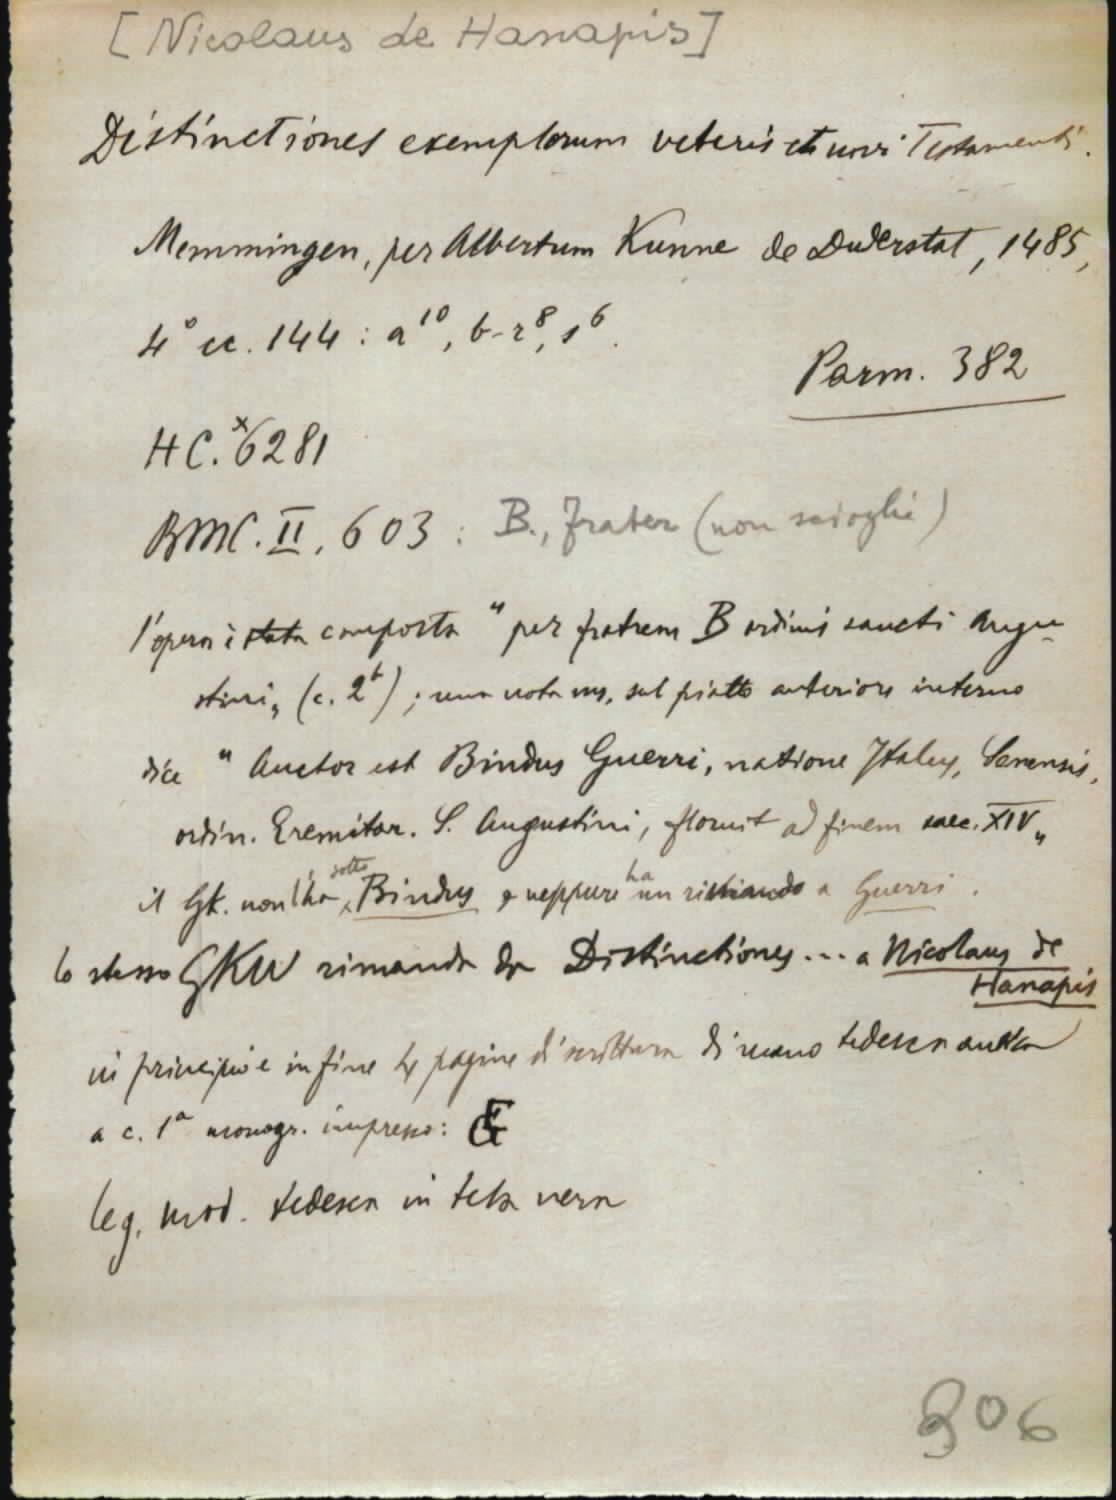 [Nicolaus de Hanapis]
Distinctiones exemplorum veteris et novi Testamenti.
Memmingen, per Albertum Kunne de Duderstat, 1485,
4° cc. 144 : a¹⁰, b-r⁸, s⁶.
Parm. 382
HC.ˣ6281
BMC. II, 603 : B., frater (non scioglie)
l'opera è stata composta "per fratrem B ordinis sancti Augu-
stini„ (c. 2ᵇ) ; una nota ms. sul piatto anteriore interno
dice "Auctor est Bindus Guerri, natione Italus, Senensis,
ordin. Eremitar. S. Augustini, floruit ad finem saec. XIV„
il GK. non l'ha sotto Bindus e neppure ha un richiamo a Guerri.
lo stesso GKW rimanda da Distinctiones... a Nicolaus de
Hanapis
in principio e in fine pagine di scrittura di mano tedesca
a c. 1ᵃ monogr. impresso: GF
leg. mod. tedesca in tela nera
306